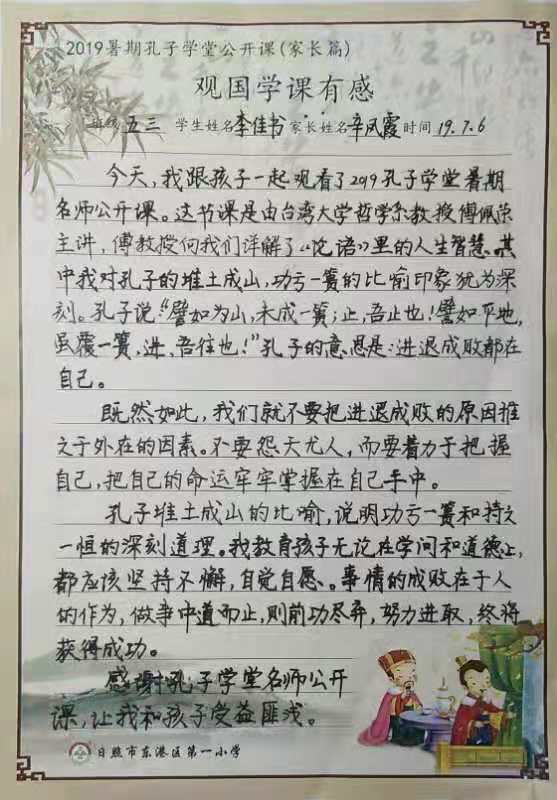 2019暑期孔子学堂公开课(家长篇)
观国学课有感
班级 五三 学生姓名 李佳书 家长姓名 辛凤霞 时间 19.7.6
今天,我跟孩子一起观看了2019孔子学堂暑期
名师公开课。这节课是由台湾大学哲学系教授傅佩荣
主讲,傅教授向我们详解了《论语》里的人生智慧、其
中我对孔子的堆土成山,功亏一篑的比喻印象犹为深
刻。孔子说:“譬如为山,未成一篑;止,吾止也!譬如平地,
虽覆一篑,进、吾往也!”孔子的意思是:进退成败都在
自己。
既然如此,我们就不要把进退成败的原因推
之于外在的因素。不要怨天尤人,而要着力于把握
自己,把自己的命运牢牢掌握在自己手中。
孔子堆土成山的比喻,说明功亏一篑和持之
一恒的深刻道理。我教育孩子无论在学问和道德上,
都应该坚持不懈,自觉自愿、。事情的成败在于人
的作为,做事中道而止,则前功尽弃,努力进取,终将
获得成功。
感谢孔子学堂名师公开
课,让我和孩子受益匪浅。
日照市东港区第一小学